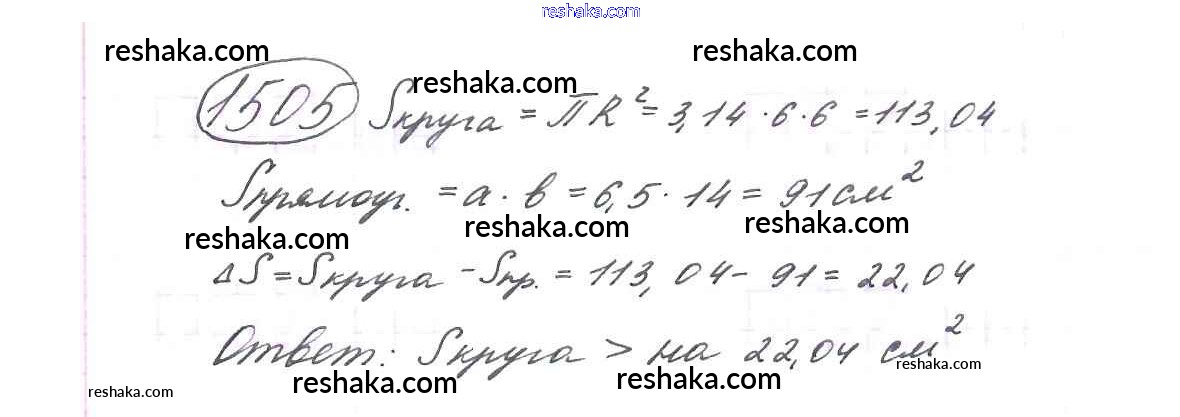 reshaka.com
reshaka.com reshaka.com
reshaka.com
1505 Sкруга = πR² = 3,14 · 6 · 6 = 113,04
Sпрямоуг. = a · b = 6,5 · 14 = 91 см²
reshaka.com reshaka.com reshaka.com
ΔS = Sкруга - Sпр. = 113,04 - 91 = 22,04
Ответ: Sкруга > на 22,04 см²
reshaka.com reshaka.com reshaka.com reshaka.com